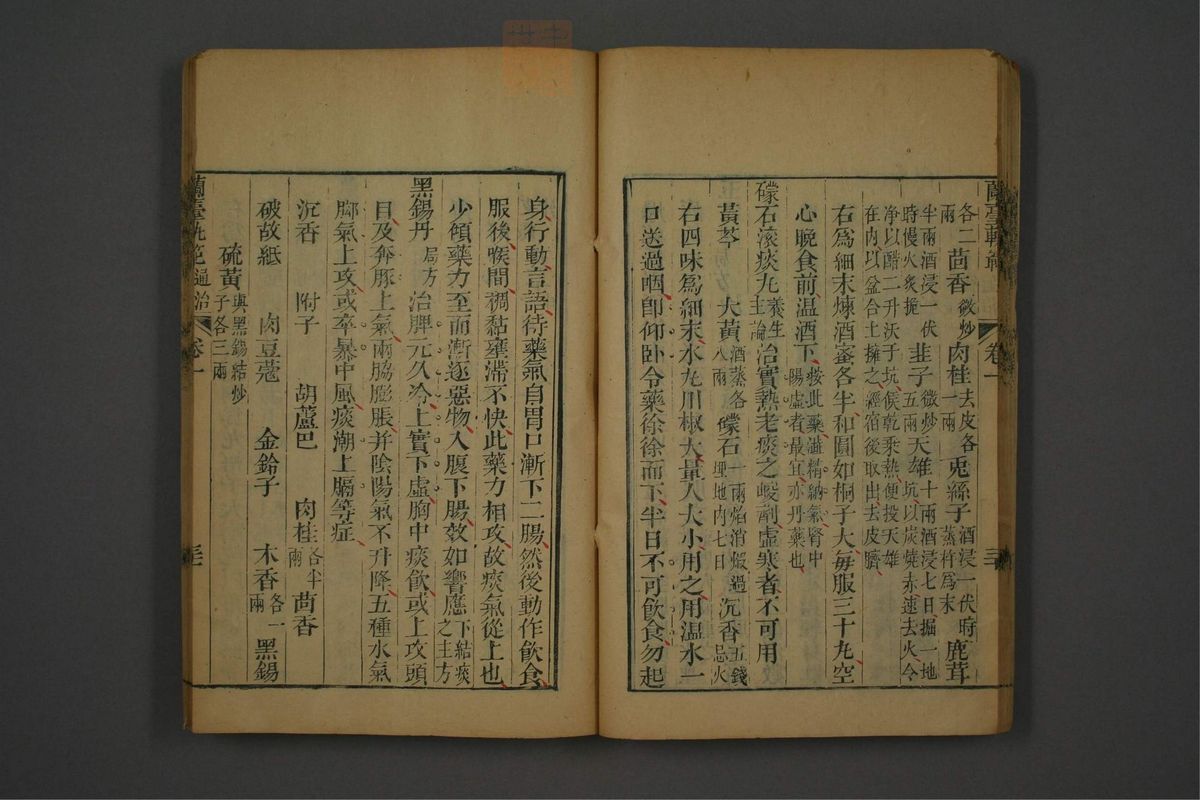 各二兩茴香微炒肉桂去皮各一兩兎絲子酒浸一伏時蒸杵爲末鹿茸
半兩酒浸一伏時慢火炙䏑韭子微炒五兩天雄十兩酒浸七日掘一地坑以炭燒赤速去火令
净以醋二升沃于坑候乾乘熱便投天雄在內以盆合土擁之經宿後取出去皮臍
右爲細末煉酒蜜各半和圓如桐子大每服三十九空
心晚食前温酒下按此藥澁精納氣腎中陽虛者最宜亦丹藥也
礞石滚痰九養生主論治實熱老痰之峻劑虛寒者不可用
黃芩 大黃酒蒸各八兩礞石一兩焰消煅過埋地內七日沉香五錢忌火
右四味爲細末水丸川椒大量人大小用之用温水一
口送過咽卽仰卧令藥徐徐而下半日不可飲食勿起
身行動言語待藥氣自胃口漸下二腸然後動作飲食
服後喉間稠黏壅滯不快此藥力相攻故痰氣從上也
少頃藥力至而漸逐惡物入腹下腸效如響應下結痰之主方
黑錫丹局方治脾元久冷上實下虛胸中痰飲或上攻頭
目及奔豚上氣兩脇膨脹并陰陽氣不升降五種水氣
脚氣上攻或卒暴中風痰潮上膈等症
沉香 附子 胡蘆巴 肉桂各半兩茴香
破故紙 肉豆蔻 金鈴子 木香各一兩黑錫
硫黃與黑錫結炒子各三兩
蘭臺軌範 通治 卷一